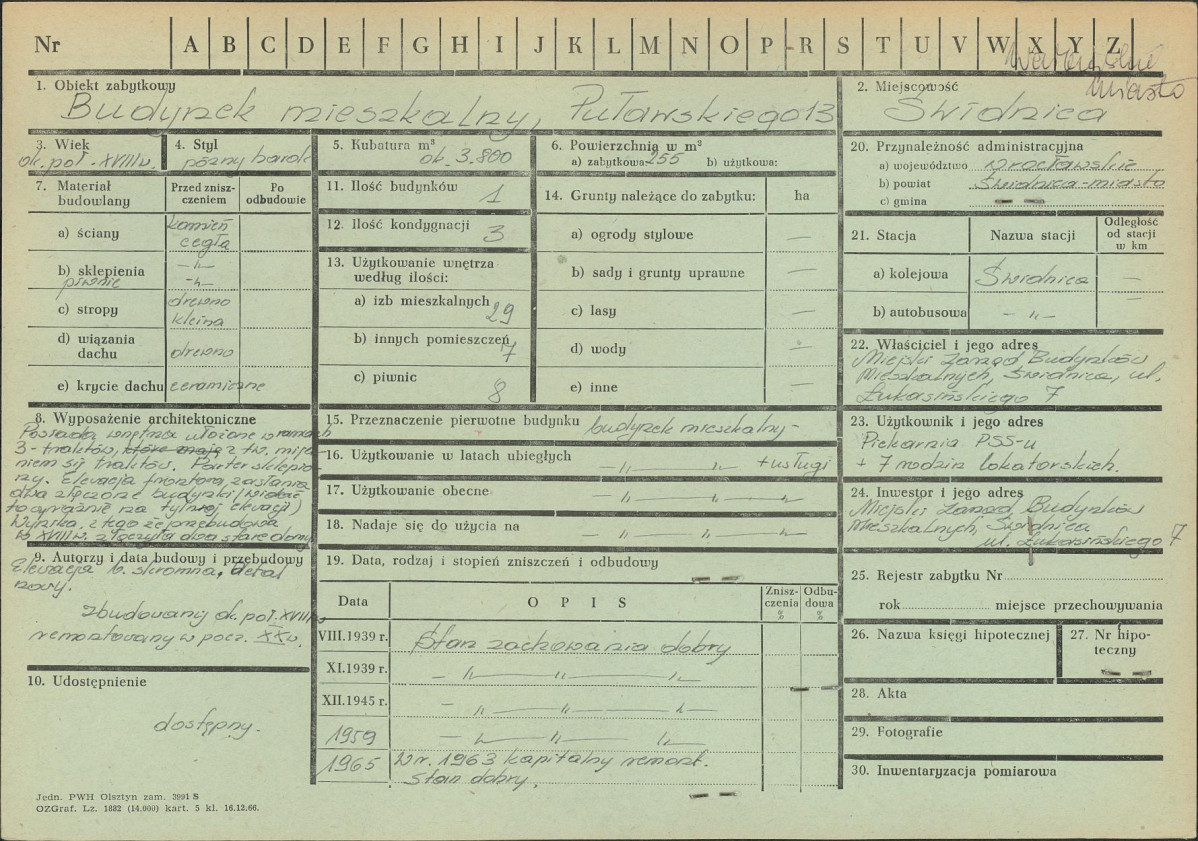 Nr A B C D E F G H I J K L M N O P-R S T U V W X Y Z
miasto
1. Obiekt zabytkowy
Budynek mieszkalny, Pułaskiego 13
2. Miejscowość
Świdnica
3. Wiek
ok. poł. XVIII w.
4. Styl
późny barok
5. Kubatura m³
ok. 3.800
6. Powierzchnia w m²
a) zabytkowa: 255 b) użytkowa:
20. Przynależność administracyjna
a) województwo wrocławskie
b) powiat Świdnica-miasto
c) gmina — —
7. Materiał budowlany
Przed zniszczeniem
Po odbudowie
a) ściany kamień
cegła
b) sklepienia — " —
piwnic — " —
c) stropy drewno
kleina
d) wiązania dachu drewno
e) krycie dachu ceramiczne
11. Ilość budynków 1
12. Ilość kondygnacji 3
13. Użytkowanie wnętrza
według ilości:
a) izb mieszkalnych 29
b) innych pomieszczeń 7
c) piwnic 8
14. Grunty należące do zabytku: ha
a) ogrody stylowe —
b) sady i grunty uprawne —
c) lasy —
d) wody —
e) inne —
21. Stacja Nazwa stacji Odległość
od stacji
w km
a) kolejowa Świdnica —
b) autobusowa — " — —
22. Właściciel i jego adres
Miejski Zarząd Budynków
Mieszkalnych, Świdnica, ul.
Łukasińskiego 7
8. Wyposażenie architektoniczne
wnętrza ułożone w ramach
3-traktów, które mają z tw. mija
niem się traktów. Parter sklepio-
ny. Elewacja frontowa zasłania
dwa złączone budynki (widać
to wyraźnie na tylnej elewacji)
Wynika z tego że przebudowa
w XVIII w. złączyła dwa stare domy
9. Autorzy i data budowy i przebudowy
Elewacja b. skromna, detal
nowy.
zbudowany ok. poł. XVIII w
remontowany w pocz. XX w.
10. Udostępnienie
dostępny.
15. Przeznaczenie pierwotne budynku budynek mieszkalny -
16. Użytkowanie w latach ubiegłych — " — " — + usługi
17. Użytkowanie obecne — " — " —
18. Nadaje się do użycia na — " — " —
19. Data, rodzaj i stopień zniszczeń i odbudowy
— —
Data OPIS Znisz-
czenia
% Odbu-
dowa
%
VIII.1939 r. Stan zachowania dobry
XI.1939 r. — " — " — " —
XII.1945 r. — " — " — " —
1959 — " — " — " —
1965 W r. 1963 kapitalny remont.
Stan dobry.
— —
23. Użytkownik i jego adres
Piekarnia PSS-u
+ 7 rodzin lokatorskich.
24. Inwestor i jego adres
Miejski Zarząd Budynków
Mieszkalnych, Świdnica
ul. Łukasińskiego 7
25. Rejestr zabytku Nr
rok miejsce przechowywania
26. Nazwa księgi hipotecznej
— —
27. Nr hipo-
teczny
— —
28. Akta
29. Fotografie
30. Inwentaryzacja pomiarowa
Jedn. PWH Olsztyn zam. 3991 S
OZGraf. Lz. 1882 (14.000) kart. 5 kl. 16.12.66.